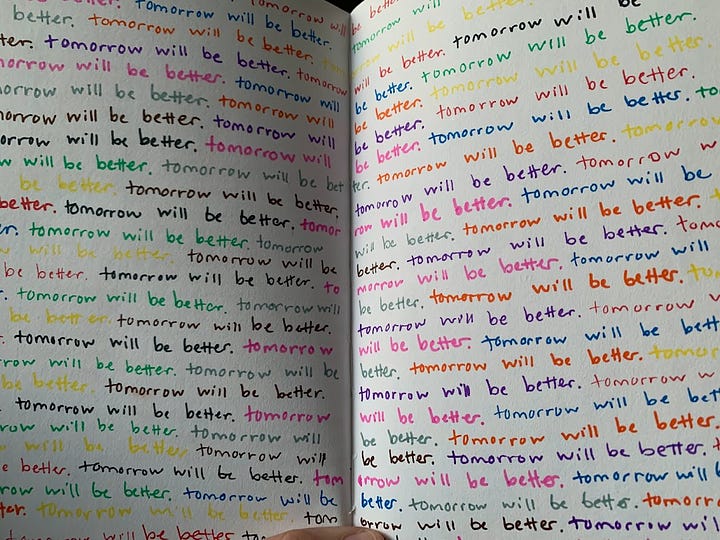 better. tomorrow will be better. tomorrow will
better. tomorrow will be better.
tter. tomorrow will be better. tomorrow
morrow will be better. tomorrow will
morrow will be better. tomorrow will
morrow will be better. tomorrow will
orrow will be better. tomorrow will
w will be better. tomorrow will be bet
be better. tomorrow will be better.
better. tomorrow will be better. tomor
er. tomorrow will be better. tomorrow
will be better. tomorrow will be
be better. tomorrow will be better. to
tomorrow will be better. tomorrow will
be better. tomorrow will be better.
tomorrow will be better. tomorrow
rrow will be better. tomorrow will be
be better. tomorrow will be better.
tomorrow will be better. tomorrow
row will be better. tomorrow will
w will be better. tomorrow will
e better. tomorrow will be better. tom
row will be better. tomorrow will be
tter. tomorrow will be better. tom
tomorrow will be better. to
be better.
tomorrow will be better.
tomorrow will be better. tomorrow will be
will be better. tomorrow will be better.
be better. tomorrow will be better.
be better. tomorrow will be better.
be better. tomorrow will be better. to
be better. tomorrow will be better. tomorrow
tter. tomorrow will be better. tomorrow w
tomorrow will be better. tomorrow will be
row will be better. tomorrow will be better.
will be better. tomorrow will be better. tomo
better. tomorrow will be better. tomorrow will
morrow will be better. tomorrow will be better.
be better. tomorrow will be better. to
tomorrow will be better. tomorrow w
will be better. tomorrow will be bett
better. tomorrow will be better. tomor
tomorrow will be better. tomorrow w
will be better. tomorrow will be bet
be better. tomorrow will be better.
be better. tomorrow will be better. t
orrow will be better. tomorrow will b
better. tomorrow will be better. tomor
orrow will be better. tomorrow will